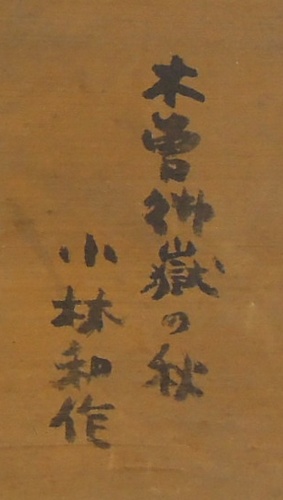 木曽御嶽の秋
小林和作